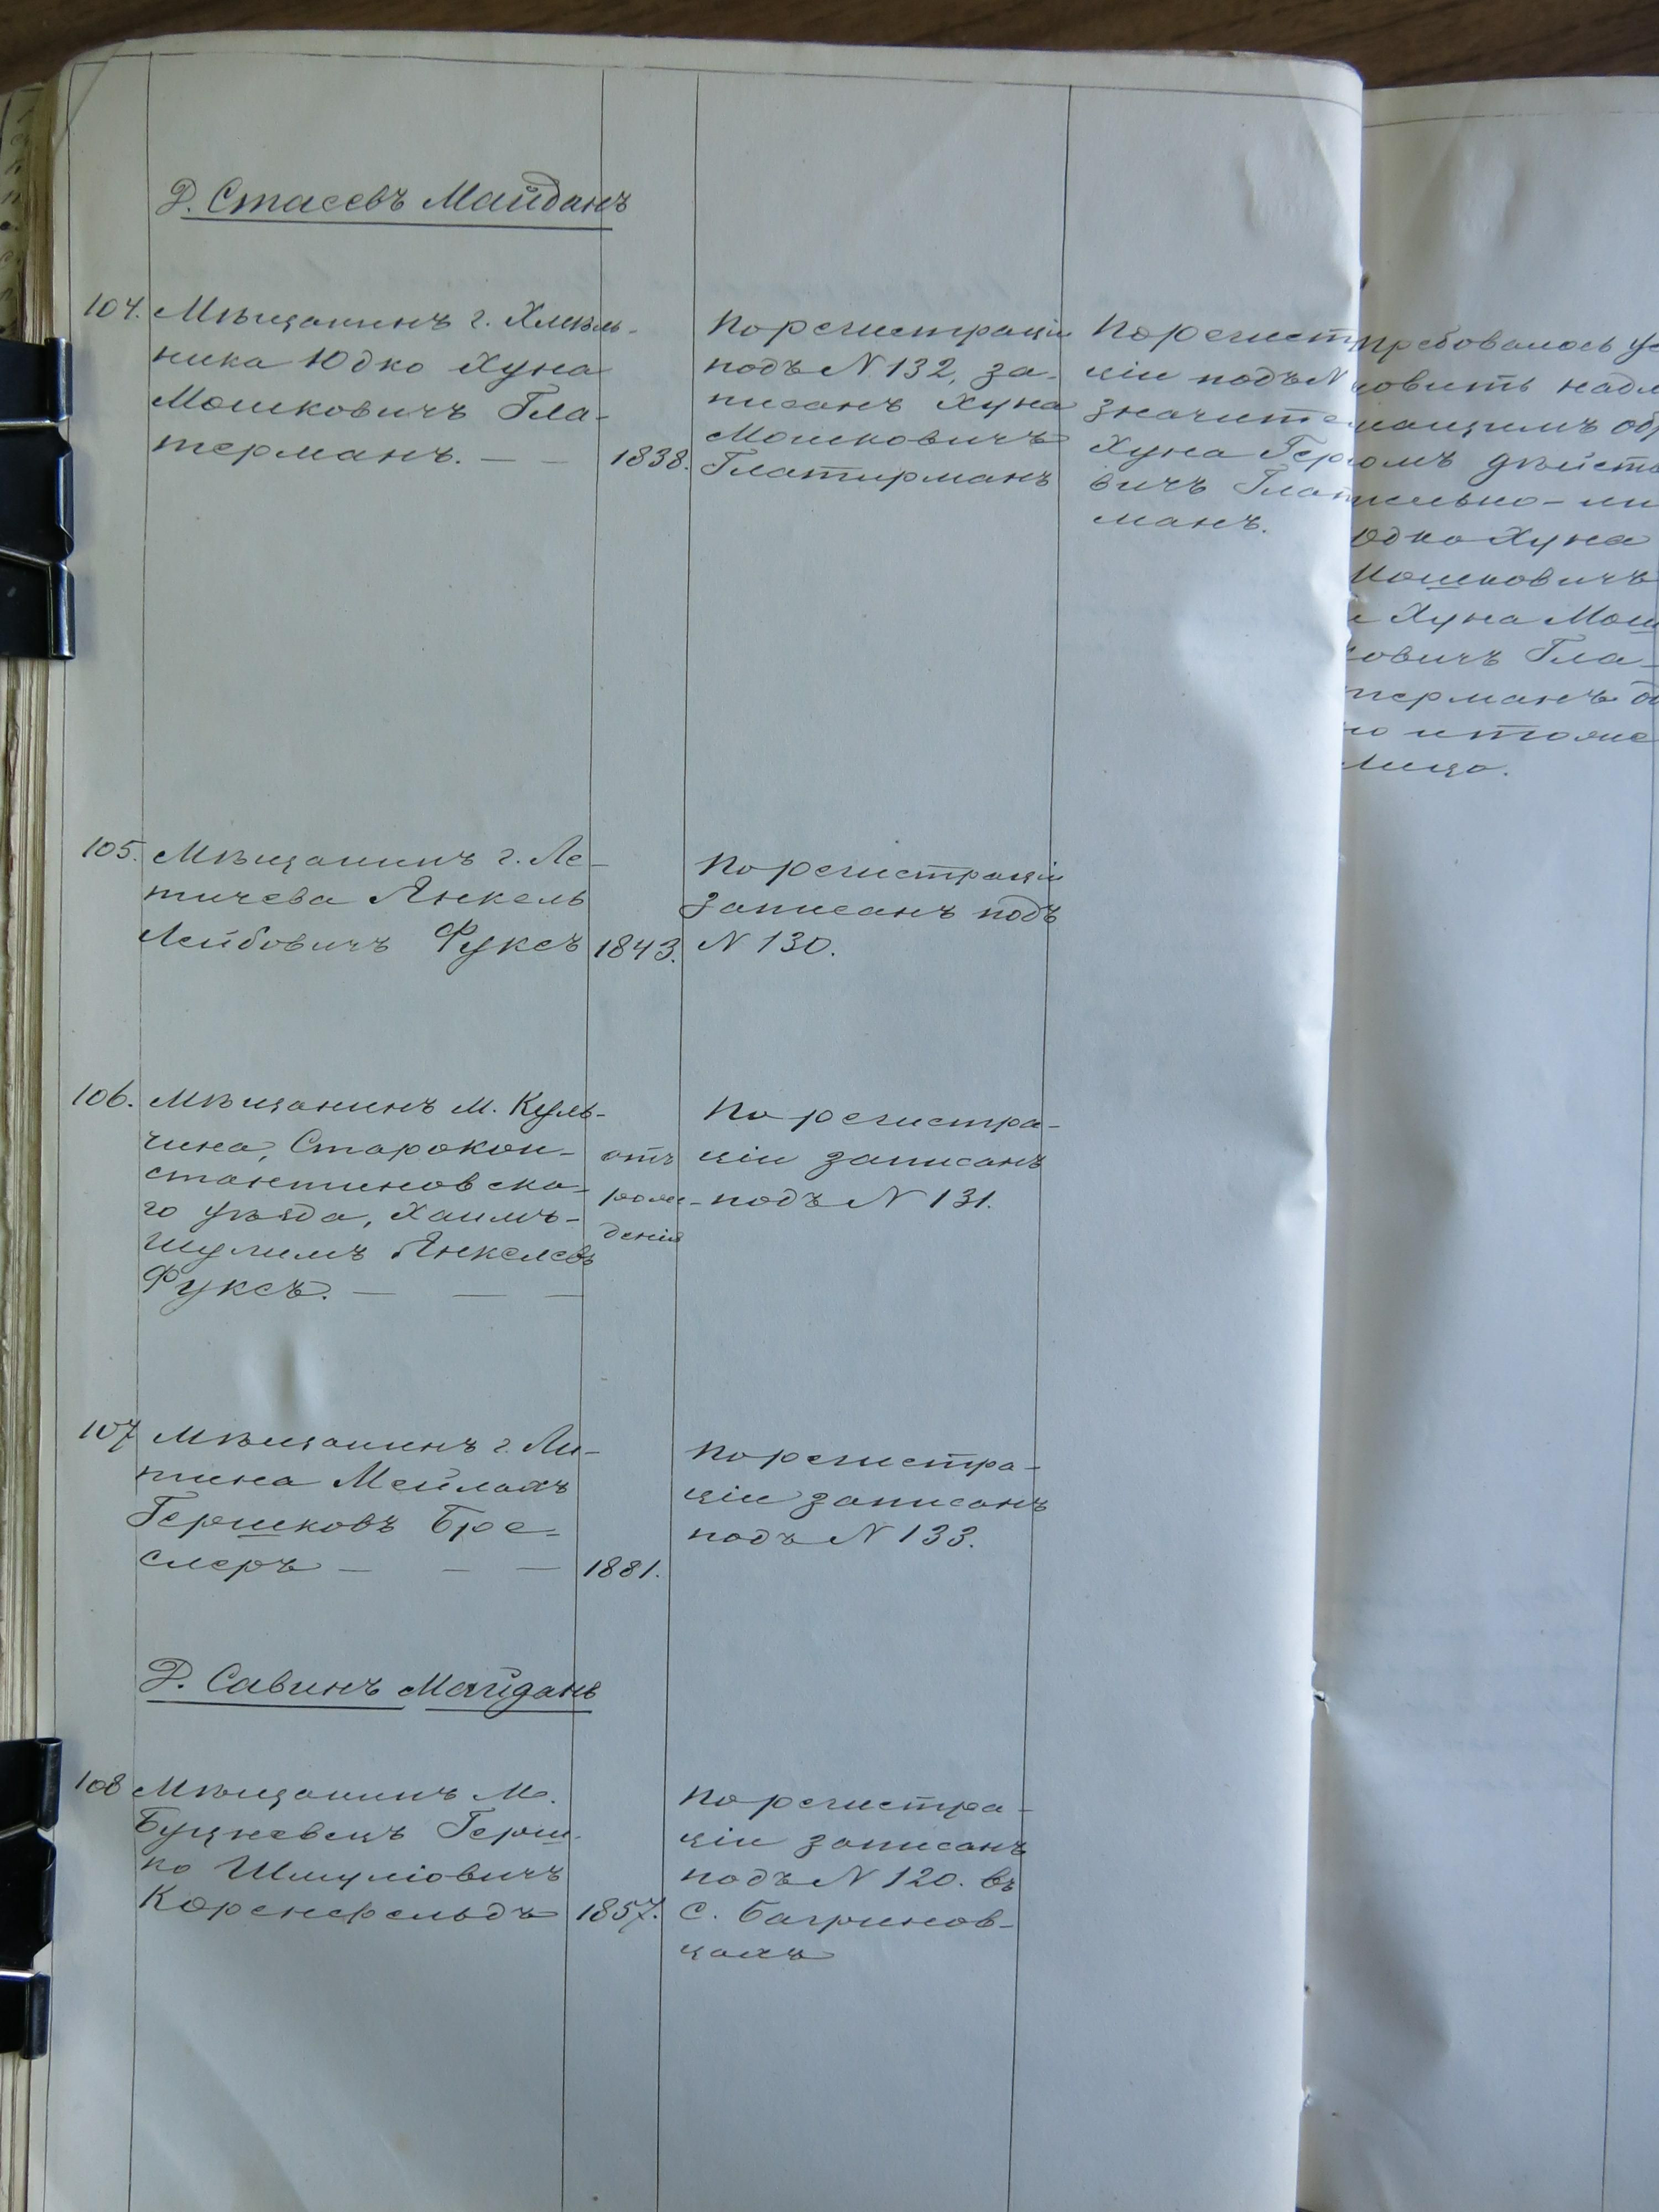 Д. Стасевъ Майданъ
104.
Мѣщанинъ г. Хмель-
ника Юдко Хуна
Мошковичъ Гла-
терманъ. — —
1838.
По регистраціи
подъ N 132, за-
писанъ Хуна
Мошковичъ
Глатирманъ
По регист
ціи подъ N
значитс
Хуна Гер
вичъ Глат
манъ.
требовалось ус
новить надл
жащимъ об
омъ дѣйств
тельно-ли
Юдко Хуна
Мошковичъ
и Хуна Мош
ковичъ Гла-
терманъ
но и тоже
лицо.
105.
Мѣщанинъ г. Ле-
тичева Янкель
Лейбовичъ Фуксъ
1843.
По регистраціи
записанъ подъ
N 130.
106.
Мѣщанинъ м. Куль-
чина, Старокон-
стантиновска-
го уѣзда, Хаимъ-
Шулимъ Янкелевъ
Фуксъ. — — —
отъ
рож-
денія
По регистра-
ціи записанъ
подъ N 131.
107
Мѣщанинъ г. Ли-
тина Мейлахъ
Гершковъ Бре-
слеръ — — —
1881.
По регистра-
ціи записанъ
подъ N 133.
Д. Савинъ Майданъ
108
Мѣщанинъ м.
Буцневецъ Герш-
ко Шмуліовичъ
Коренфельдъ
1857.
По регистра-
ціи записанъ
подъ N 120. въ
с. Багринов-
цахъ